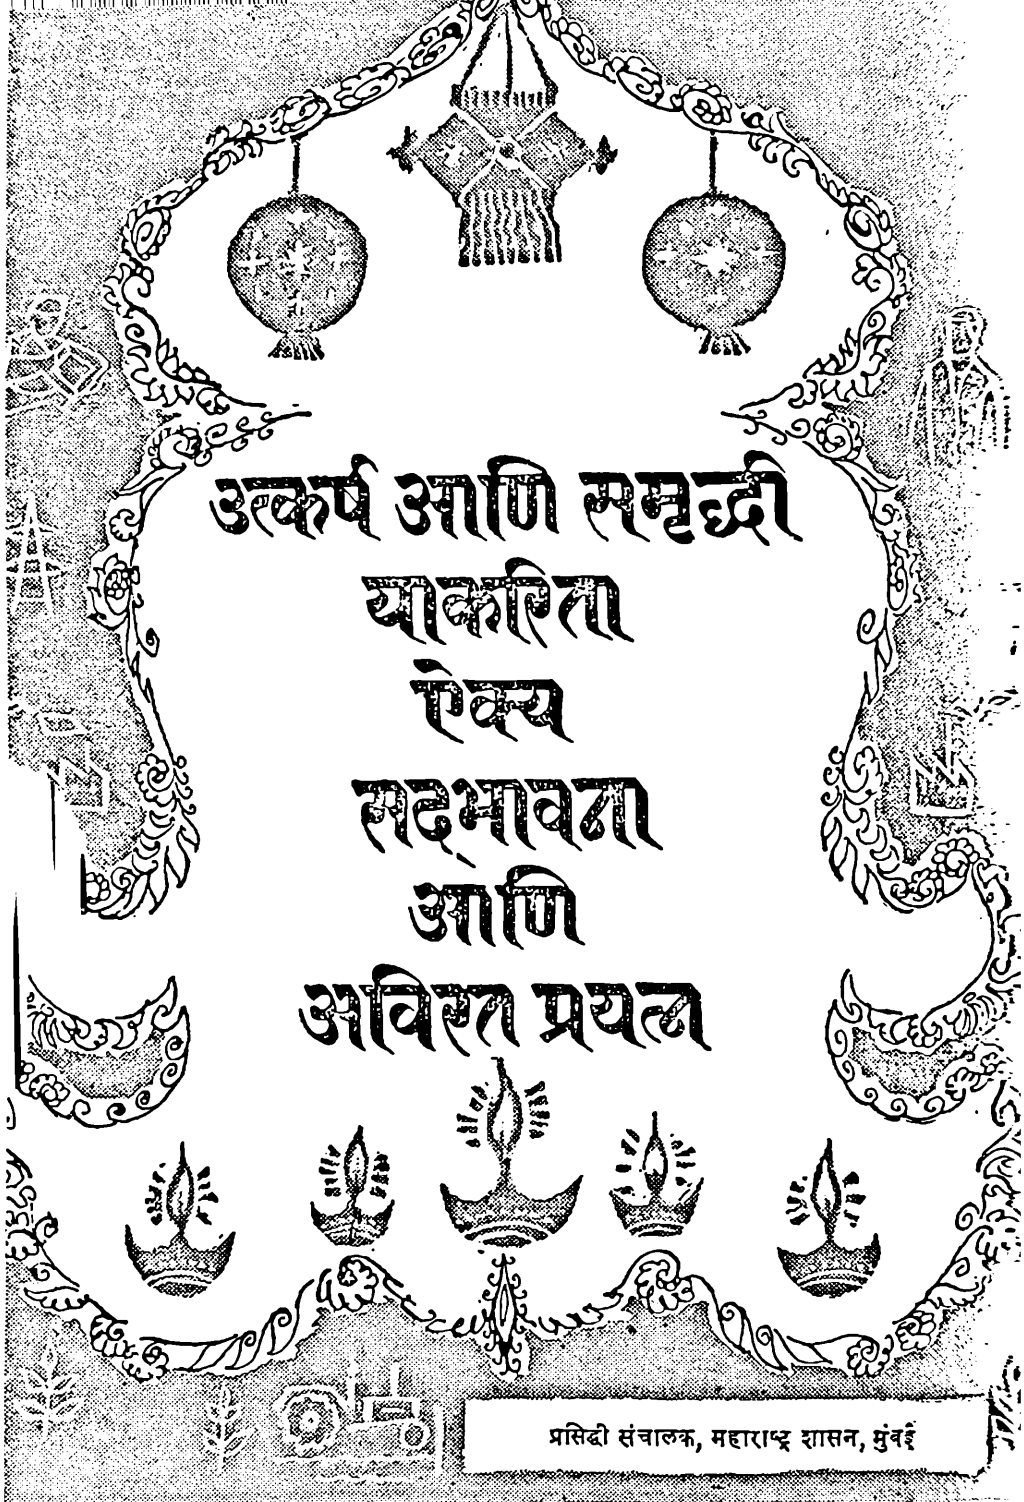 उत्कर्ष आणि समृध्दी
याकरिता
ऐक्य
सद्‌भावना
आणि
अविरत प्रयत्न
प्रसिद्धी संचालक, महाराष्ट्र शासन, मुंबई